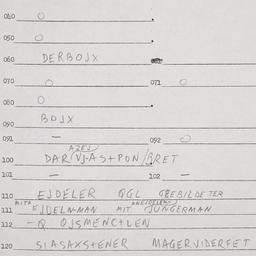 010 O
050 O
060 DERBOJX
070 O 071 O
080 O
090 BOJX
091 — 092 O
100 DAR(VJ-AS+PON/BRET
101 — 102 —
110 EJDELER QGL GEBILDETER
111 EJDELN-MAN MIT JUNGERMAN
112 -Q QJSMENCTLEN
120 SIASAXS+ENER MAGERVIDERFET